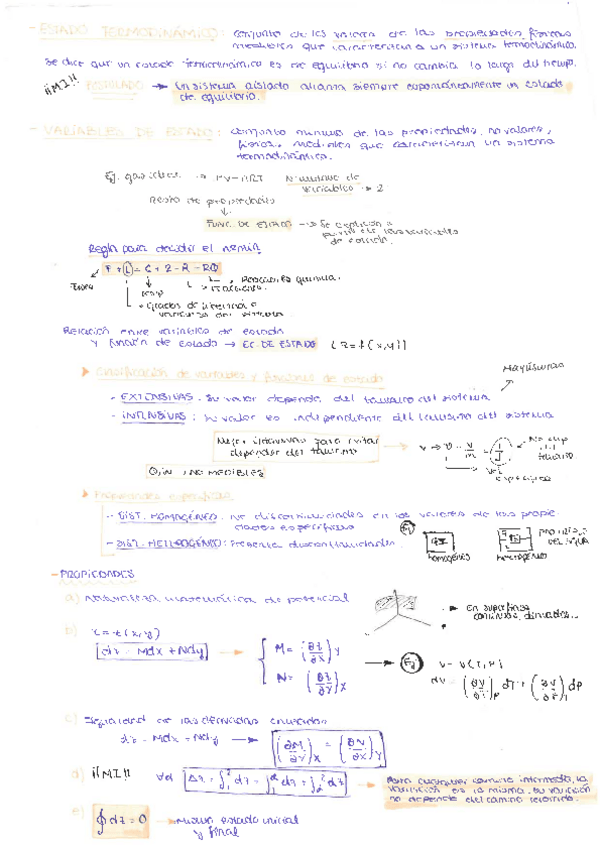 - ESTADO TERMODINÁMICO: conjunto de los valores de las propiedades físicas
medibles que caracterizan a un sistema termodinámico.
Se dice que un estado termodinámico es de equilibrio si no cambia a lo largo del tiempo.
¡¡MI!! POSTULADO → Un sistema aislado alcanza siempre espontáneamente un estado
de equilibrio.
- VARIABLES DE ESTADO: conjunto mínimo de las propiedades, no valores,
físicas, medibles que caracterizan un sistema
termodinámico.
Ej. gas ideal → PV=nRT Nº mínimo de
variables → 2
Resto de propiedades
↓
FUNC. DE ESTADO → Se explican a
partir de las variables
de estado.
Regla para decidir el
F + L = C + 2 - R - RQ
Reacciones químicas.
Relación entre variables de estado
y función de estado → EC. DE ESTADO (z = f(x,y))
Clasificación de variables y funciones de estado
Mayúsculas
- EXTENSIVAS: Su valor depende del tamaño del sistema
- INTENSIVAS: Su valor es independiente del tamaño del sistema
Mejor intensivas para evitar
depender del tamaño
No dep
del
tamaño
Vol
específico
Q, W, ¡NO MEDIBLES
Propiedades específicas
- DIST. HOMOGÉNEO: no discontinuidades en los valores de las propie
dades específicas
- DIST. HETEROGÉNEO: Presenta discontinuidades
Homogéneo
Heterogéneo
- PROPIEDADES
a) Naturaleza matemática de potencial
En superficies
continuas, derivadas...
b) z = z(x,y)
dz = Mdx + Ndy → M = (∂z/∂x)y
N = (∂z/∂y)x
V = V(T,P)
dV = (∂V/∂T)P dT + (∂V/∂P)T dP
c) Igualdad de las derivadas cruzadas
dz = Mdx + Ndy → (∂M/∂y)x = (∂N/∂x)y
d) ¡¡MI!!
Para cualquier camino intermedio, la
variación es la misma. Su variación
no depende del camino recorrido.
e) ∮dz = 0 → Mismo estado inicial
y final